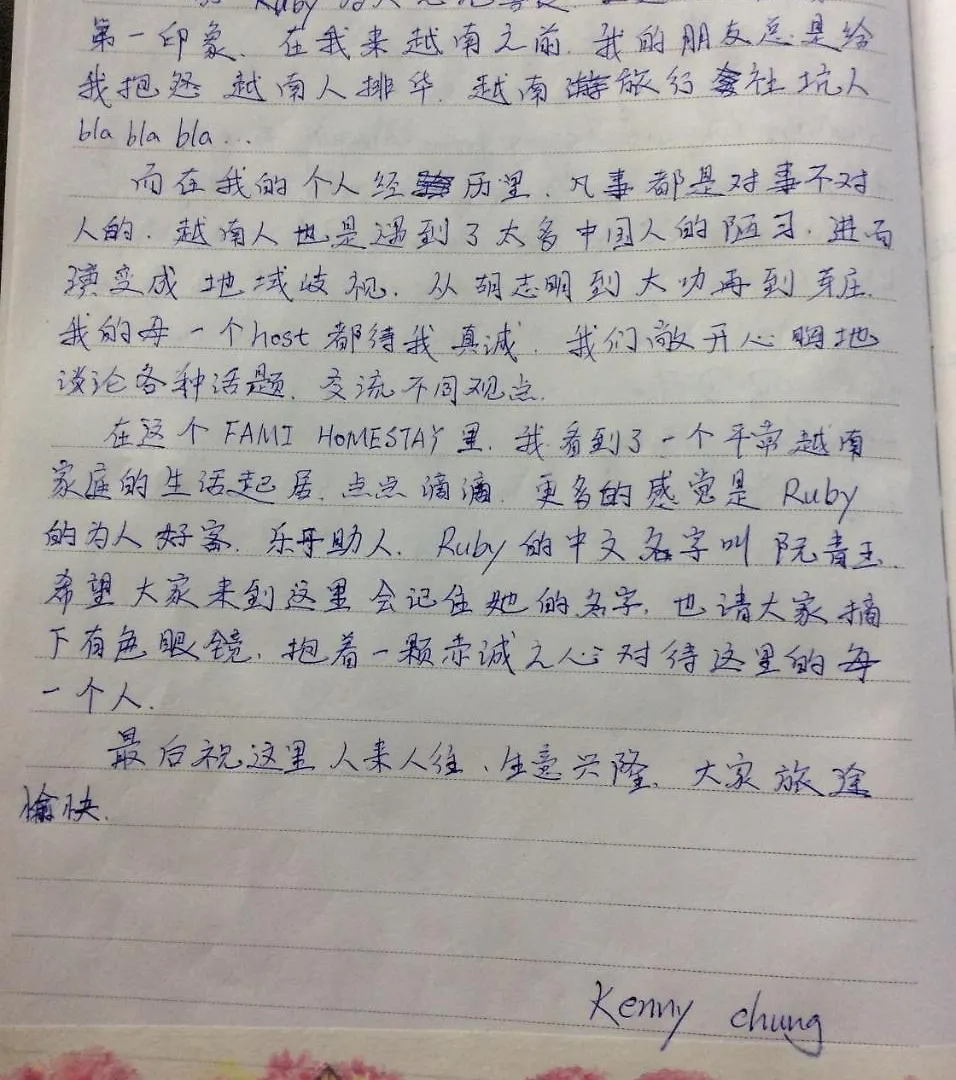 Ruby
第一印象. 在我来越南之前. 我的朋友总是给
我抱怨 越南人排华. 越南 旅行社坑人
bla bla bla...
而在我的个人经历里. 凡事都是对事不对
人的. 越南人也是遇到了太多中国人的陋习. 进而
演变成 地域歧视. 从胡志明到大叻再到芽庄.
我的每一个host都待我真诚. 我们敞开心胸地
谈论各种话题. 交流不同观点.
在这个 FAMI HOMESTAY里. 我看到了一个平常越南
家庭的生活起居. 点点滴滴. 更多的感觉是 Ruby
的为人好客. 乐于助人. Ruby的中文名字叫 阮青玉.
希望大家来到这里会记住她的名字. 也请大家摘
下有色眼镜. 抱着一颗赤诚之心对待这里的每
一个人.
最后祝这里人来人往、生意兴隆. 大家旅途
愉快.
Kenny chung